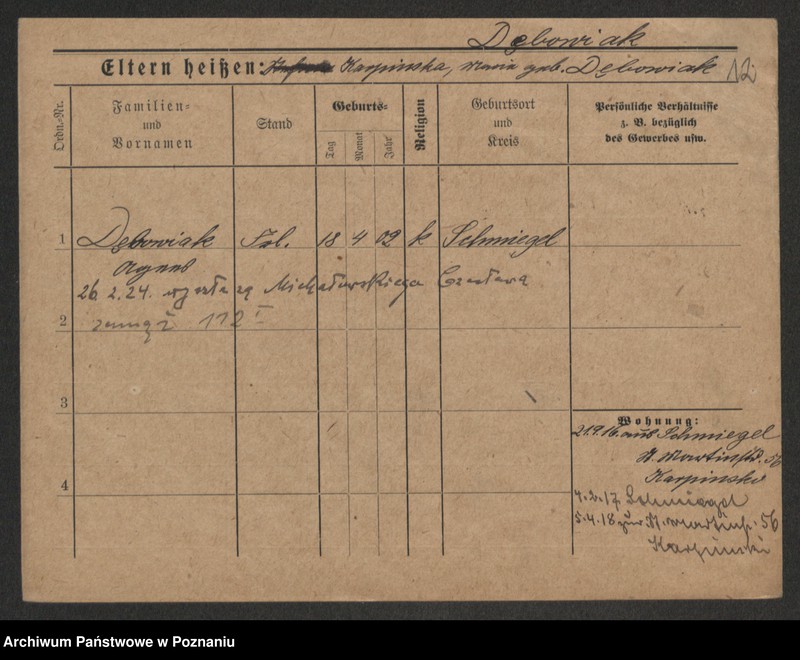 Dębowiak
Eltern heißen: Karpinska, Maria geb. Dębowiak 12
Ordn.-Nr.
Familien-
und
Vornamen
Stand
Geburts-
Tag
Monat
Jahr
Religion
Geburtsort
und
Kreis
Persönliche Verhältnisse
z. B. bezüglich
des Gewerbes usw.
1 Dębowiak Frl. 18 4 02 k Schmiegel
Agnes
26 2.24. wyszła za Michałowskiego Czesława
2 zamąż 112 I
3
4
Wohnung:
21.9.16. aus Schmiegel
St. Martinstr. 56
Karpinski
4.2.17 Schmiegel
5.4.18 zur St. Martinstr. 56
Karpinski
Archiwum Państwowe w Poznaniu